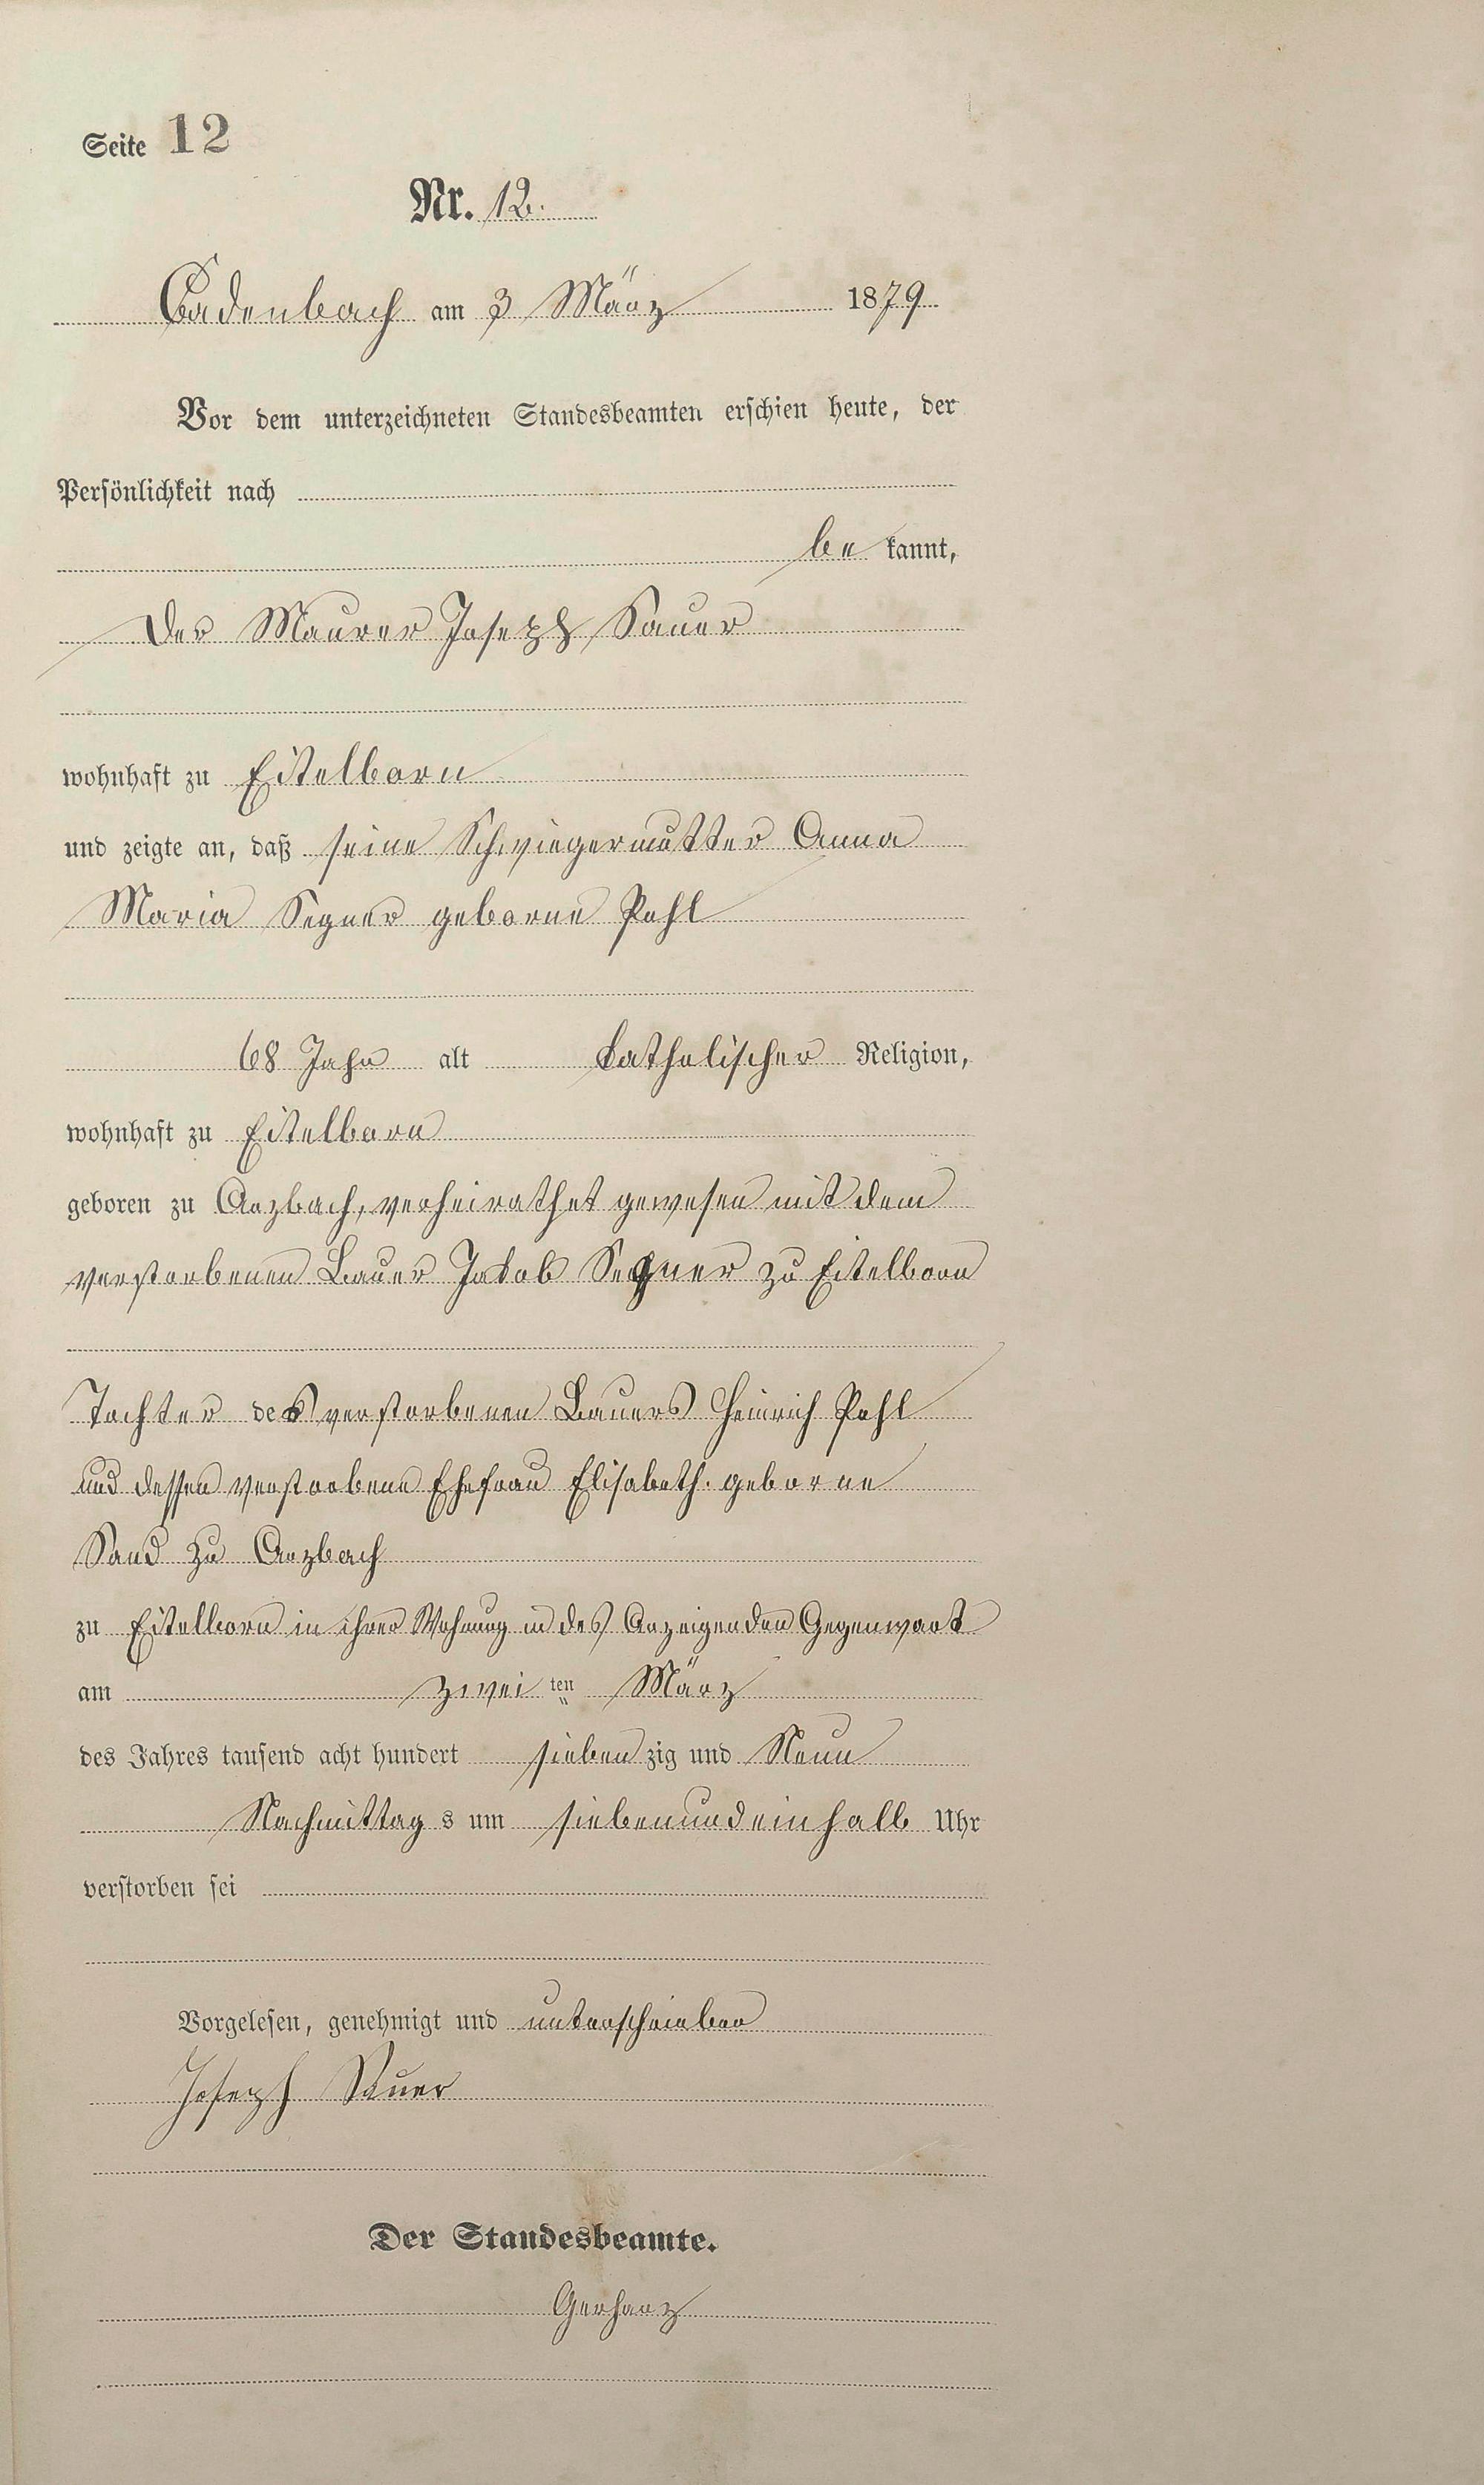 Seite 12
Nr. 12.
Cadenbach am 3 März 1879
Vor dem unterzeichneten Standesbeamten erschien heute, der
Persönlichkeit nach
be kannt,
der Maurer Joseph Sauer
wohnhaft zu Eitelborn
und zeigte an, daß seine Schwiegermutter Anna
Maria Segner geborne Pohl
68 Jahr alt katholischer Religion,
wohnhaft zu Eitelborn
geboren zu Arzbach, verheirathet gewesen mit dem
verstorbenen Bauer Jakob Segner zu Eitelborn
Tochter des verstorbenen Bauers Heinrich Pohl
und dessen verstorbene Ehefrau Elisabeth. geborne
Sand zu Arzbach
zu Eitelborn in ihrer Wohnung in des Anzeigenden Gegenwart
am zwei ten März
des Jahres tausend acht hundert sieben zig und Neun
Nachmittag s um siebenundeinhalb Uhr
verstorben sei
Vorgelesen, genehmigt und unterschrieben
Joseph Sauer
Der Standesbeamte.
Gerharz